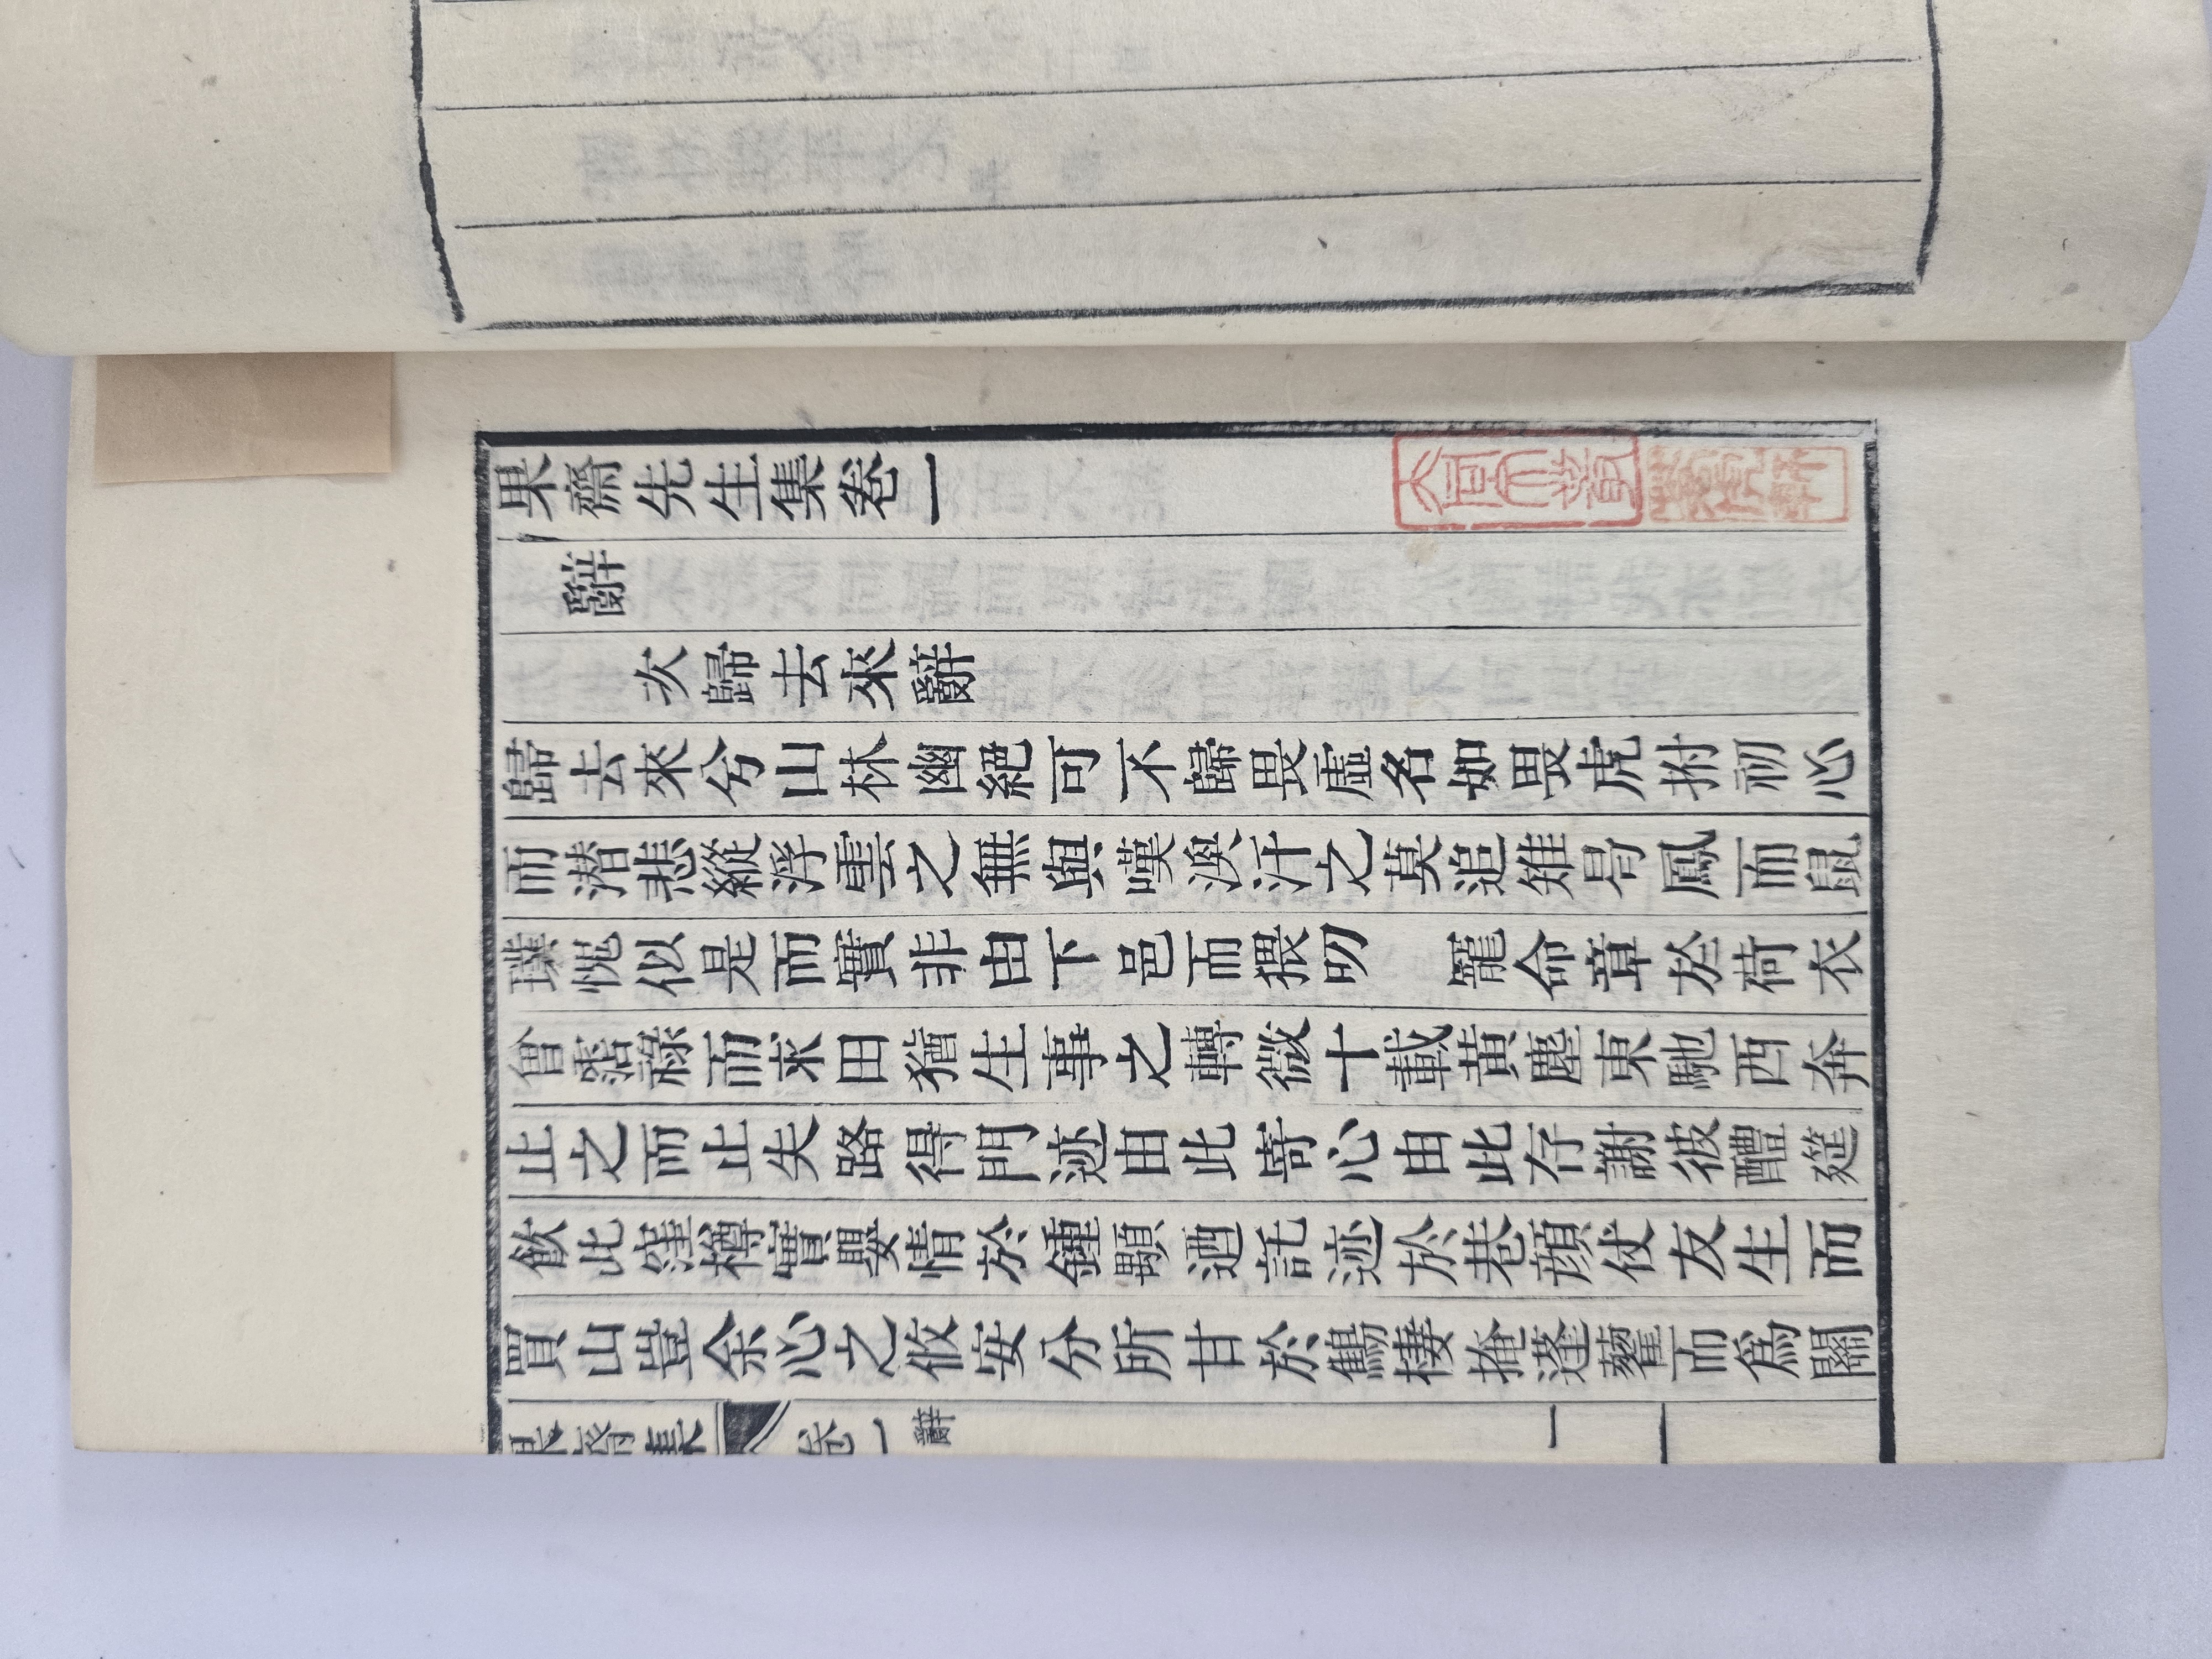 果齋先生集卷一
辭
次歸去來辭
歸去來兮山林幽絕可不歸畏虛名如畏虎拊初心
而潛悲縱浮雲之無與嘆渙汗之莫追雉咢鳳而鼠
璞愧似是而實非由下邑而猥叨　寵命章於荷衣
曾霑祿而求田猶生事之轉微十載黃塵東馳西奔
止之而止失路得門迹由此寄心由此存謝彼醴筵
飮此窪樽實嬰情於鍾顒迺託迹於巷顔伏友生而
買山豈余心之攸安分所甘於鷦棲掩蓬藋而爲關
果齋集　卷一　辭　一